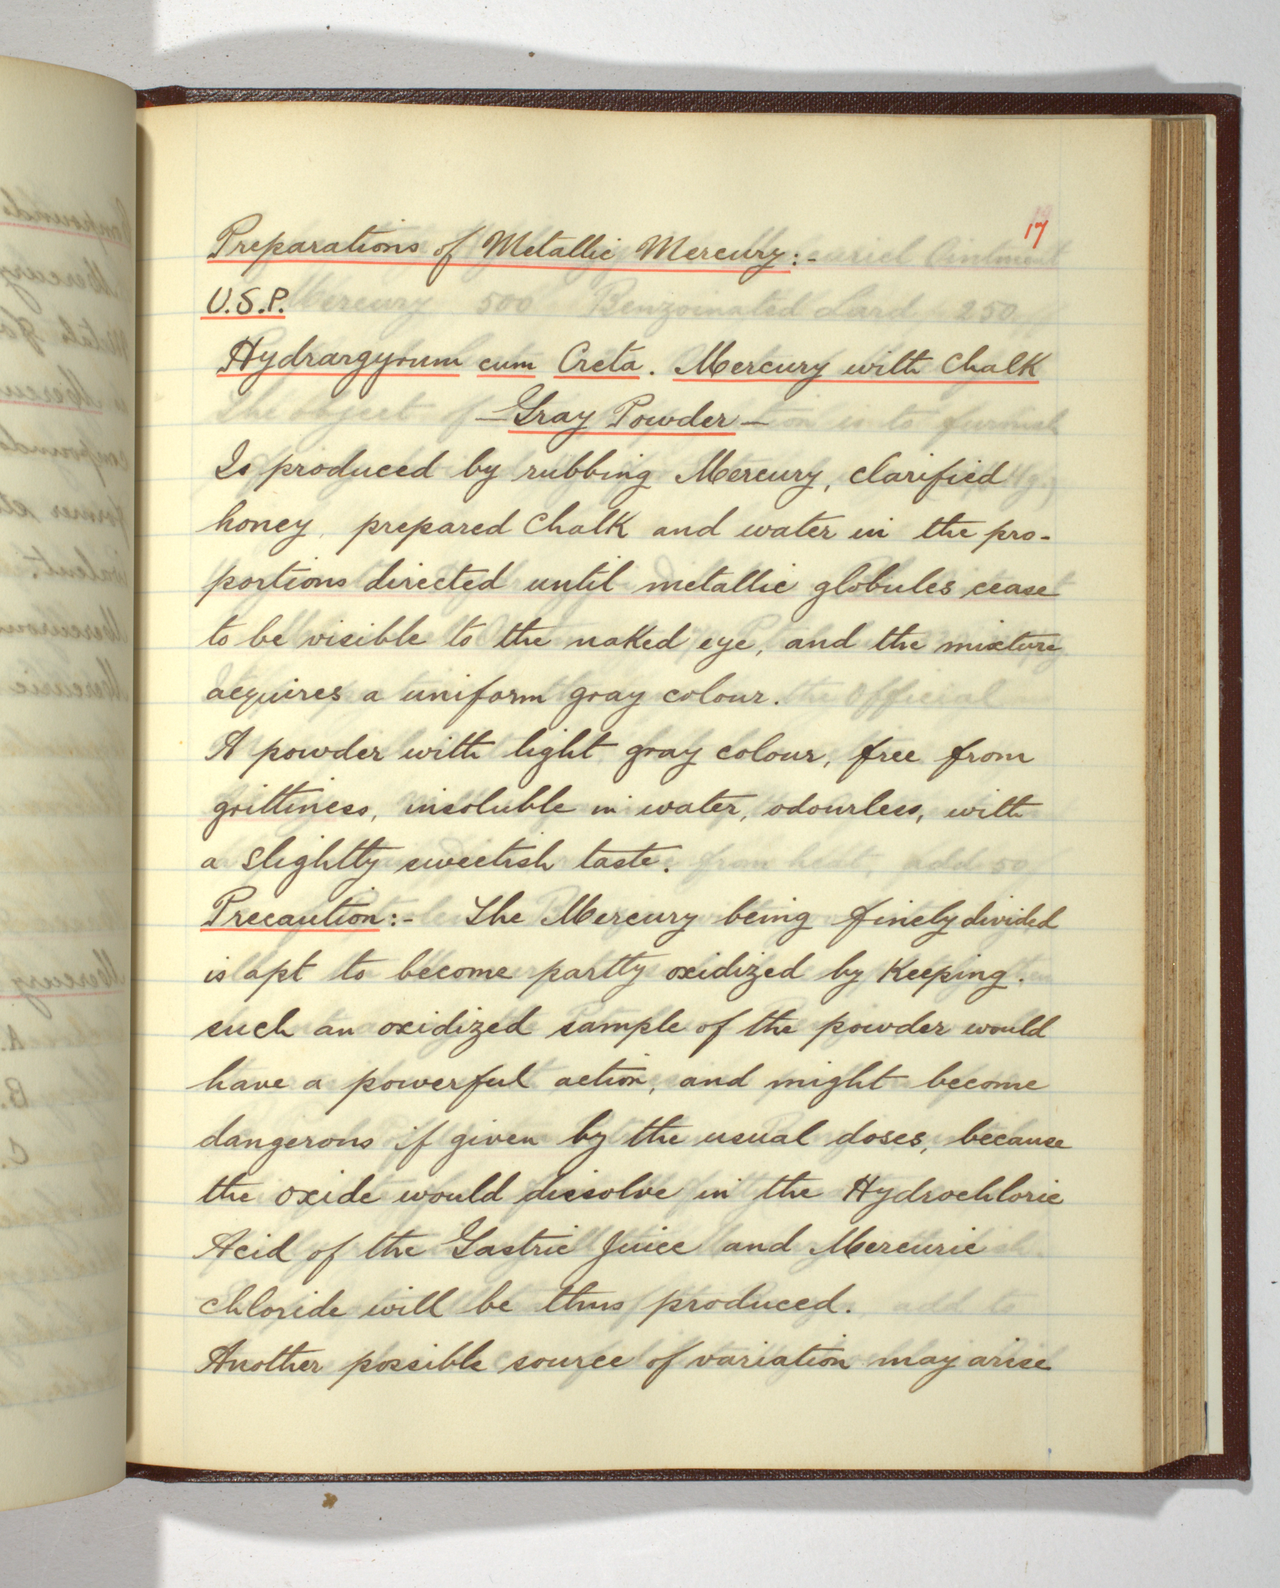 17
Preparations of Metallic Mercury:-
U.S.P.
Hydrargyrum cum Creta. Mercury with Chalk
- Gray Powder -
Is produced by rubbing Mercury, clarified
honey, prepared Chalk and water in the pro-
portions directed until metallic globules cease
to be visible to the naked eye, and the mixture
acquires a uniform gray colour.
A powder with light gray colour, free from
grittiness, insoluble in water, odourless, with
a slightly sweetish taste.
Precaution:- The Mercury being finely divided
is apt to become partly oxidized by keeping.
such an oxidized sample of the powder would
have a powerful action, and might become
dangerous if given by the usual doses, because
the oxide would dissolve in the Hydrochloric
Acid of the Gastric Juice and Mercuric
chloride will be thus produced.
Another possible source of variation may arise